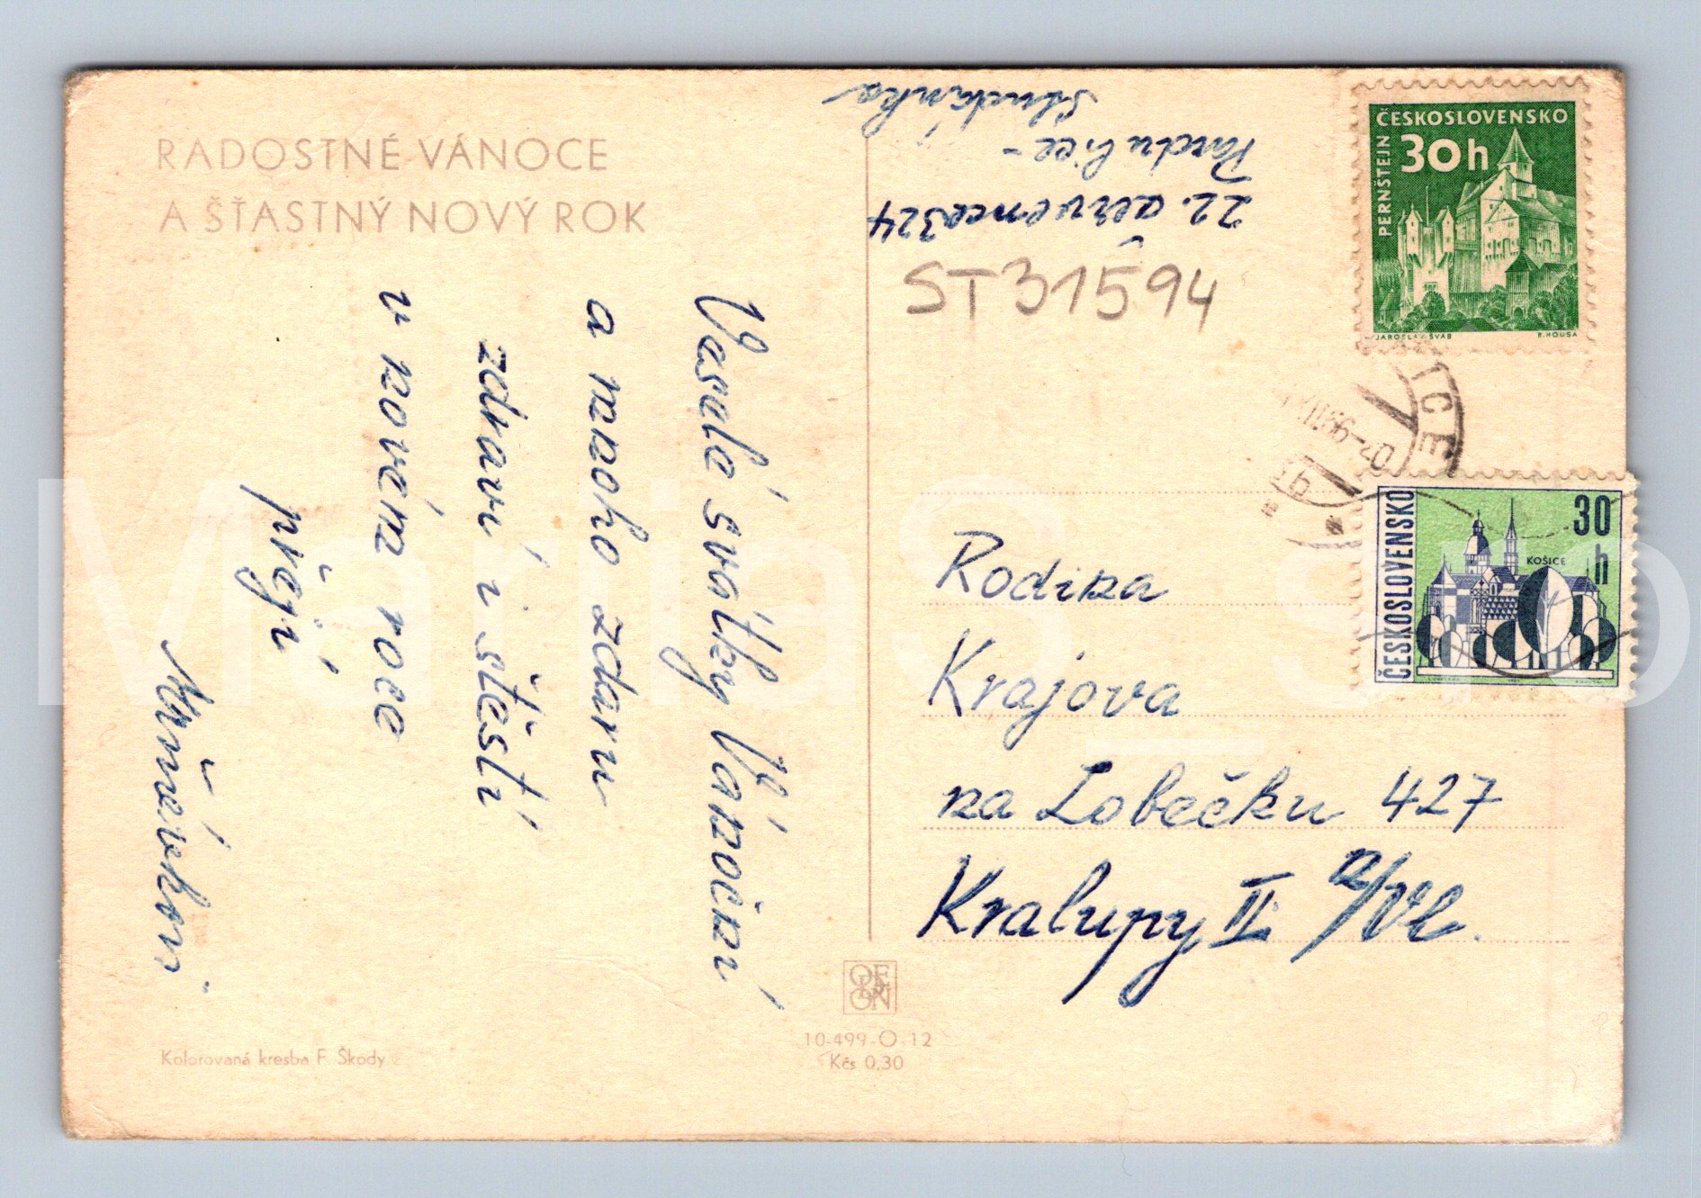 RADOSTNÉ VÁNOCE
A ŠŤASTNÝ NOVÝ ROK
Veselé svátky Vánoční
a mnoho zdaru
zdraví i štěstí
v novém roce
přejí
Kolorovaná kresba F. Škody
10-499-O 12
Kčs 0,30
22. července 324
Pardubice -
Studánka
ST31594
Rodina
Krajova
na Lobečku 427
Kralupy II n/Vl.
ČESKOSLOVENSKO
30h
PERNŠTEJN
JAROSLAV ŠVÁB
R. HOUSA
ICE
ČESKOSLOVENSKO
30 h
KOŠICE